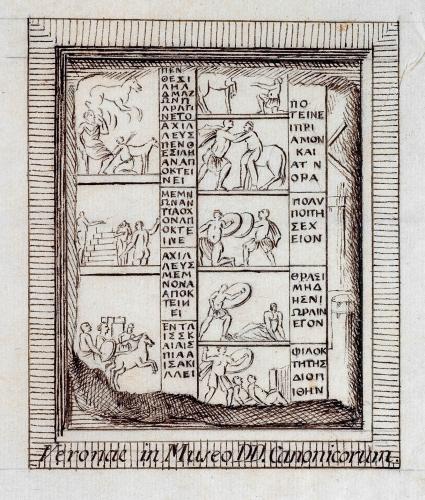 ΠΕΝ
ΘΕΣΙ
ΛΗΑ
ΑΜΑΖ
ΩΝΠ
ΑΡΑΓΙ
ΝΕΤΟ
ΑΧΙΛ
ΛΕΥΣ
ΠΕΝΘ
ΕΣΙΛΗ
ΑΝΑΠΟ
ΚΤΕΙ
ΝΕΙ
ΜΕΜΝ
ΩΝΑΝ
ΤΙΛΟΧ
ΟΝΑΠ
ΟΚΤΕ
ΙΝΕ
ΑΧΙΛ
ΛΕΥΣ
ΜΕΜ
ΝΟΝΑ
ΑΠΟΚ
ΤΕΙΝ
ΕΙ
ΕΝΤΑ
ΙΣΣΚ
ΑΙΑΙΣ
ΠΙΑΑ
ΙΣΑΚΙ
ΛΛΕΙ
ΠΟ
ΤΕΙΝΕ
ΙΠΡΙ
ΑΜΟΝ
ΚΑΙ
ΑΤΝ
ΟΡΑ
ΠΟΛΥ
ΠΟΙΤΗ
ΣΕΧ
ΕΙΟΝ
ΘΡΑΣΙ
ΜΗΔ
ΗΣΝΙ
ΩΡΑΙΝ
ΕΓΟΝ
ΦΙΛΟΚ
ΤΗΤΗΣ
ΔΙΟΠ
ΙΘΗΝ
Veronae in Museo DD. Canonicorum.